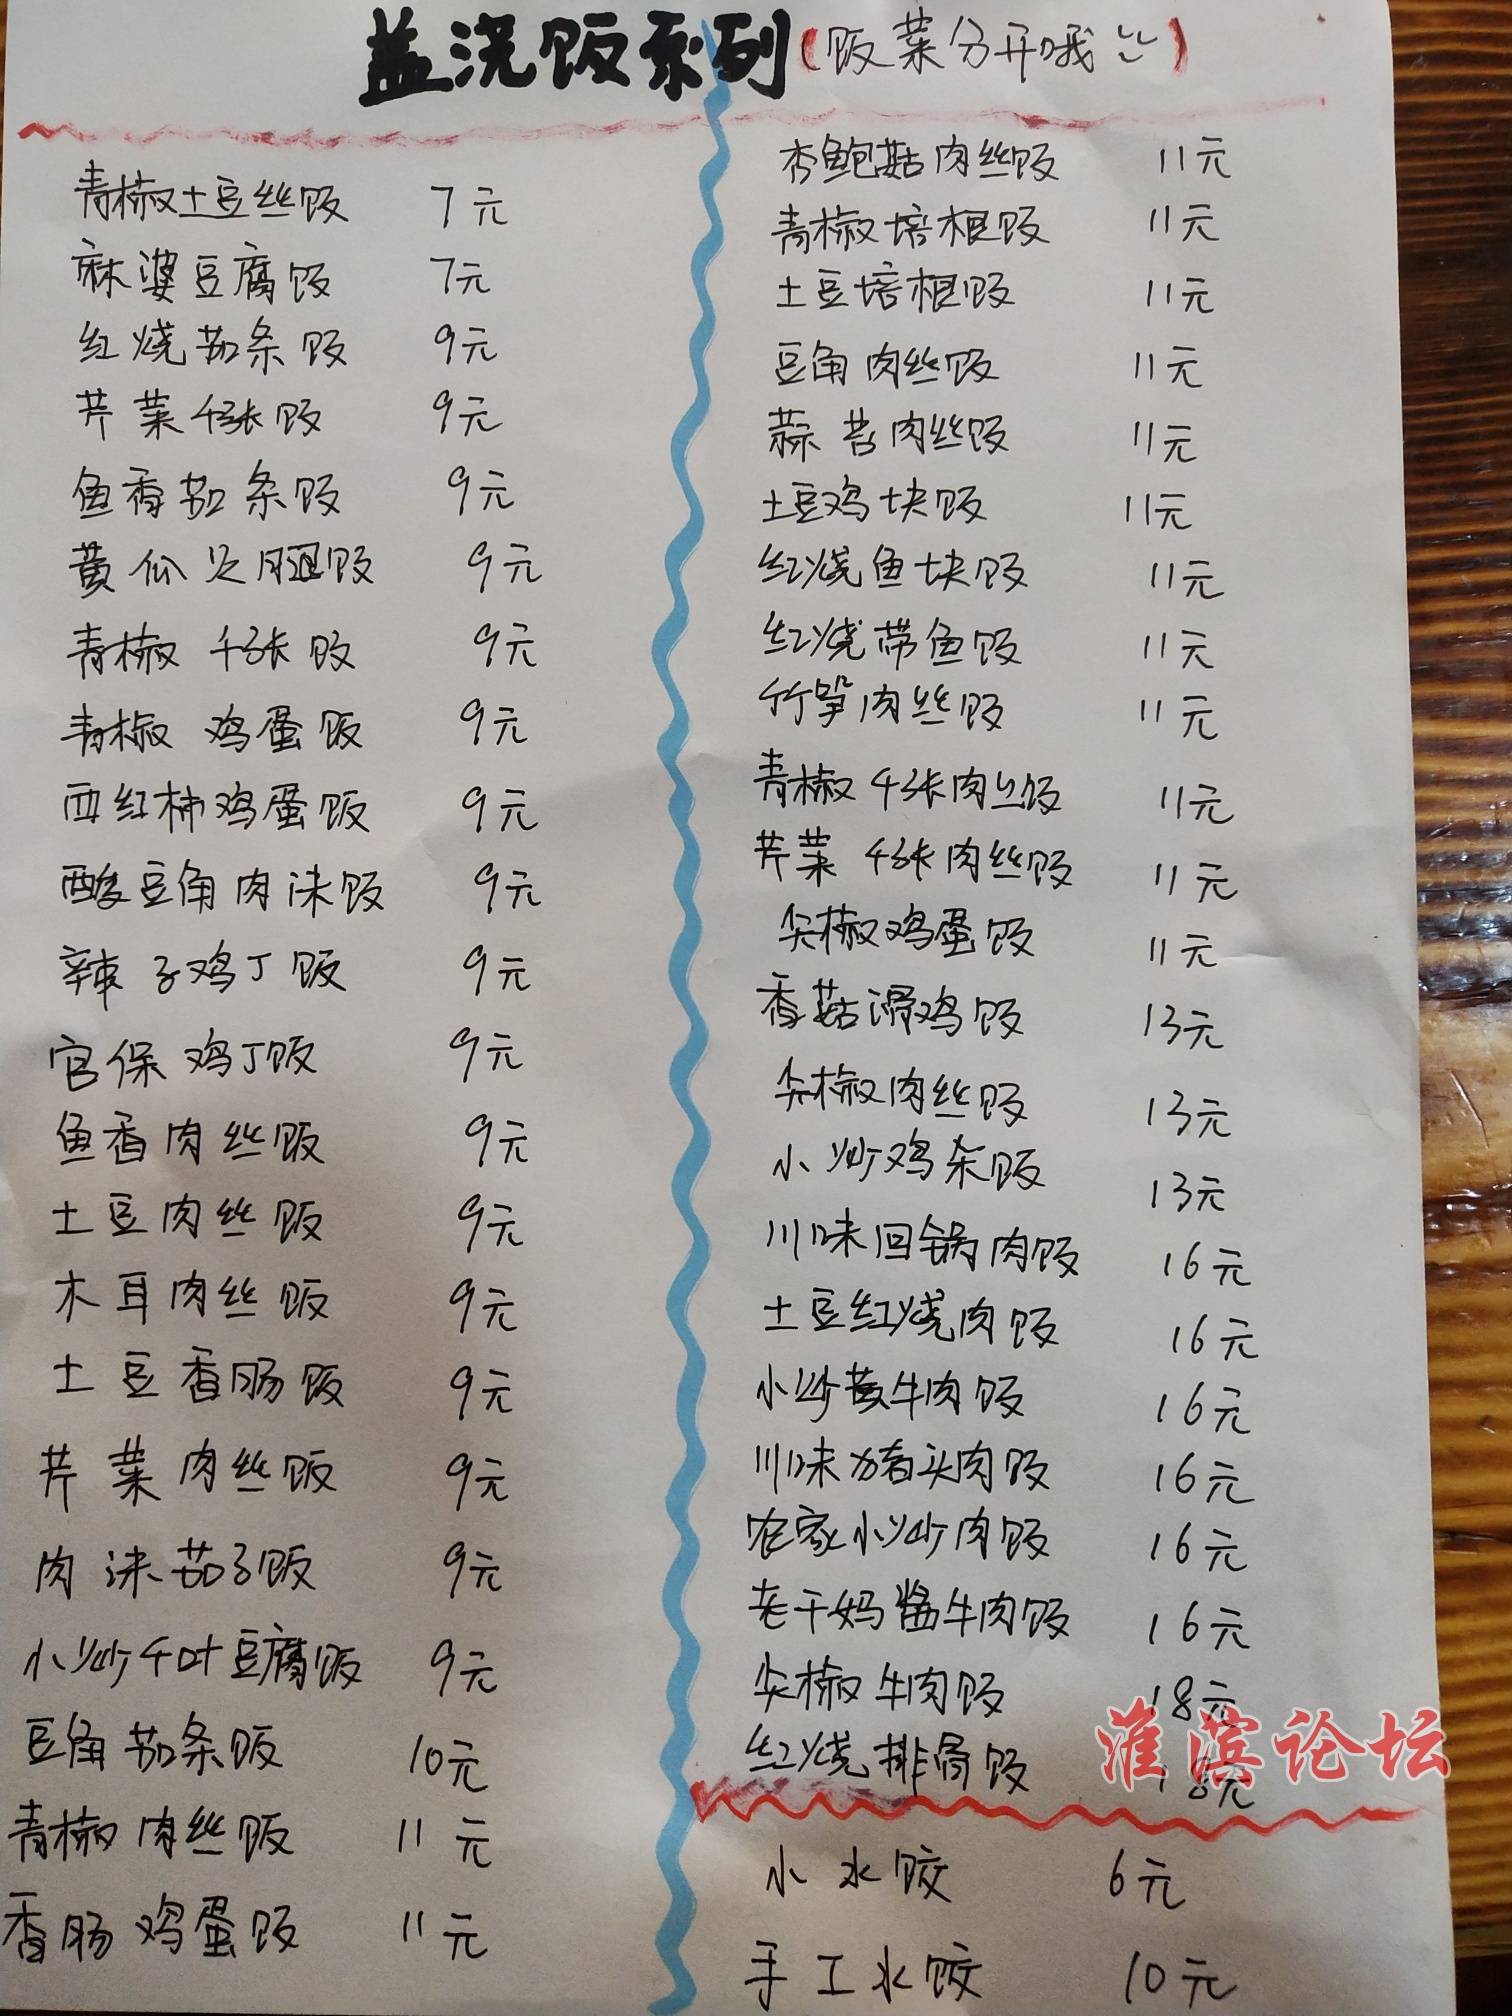 盖浇饭系列(饭菜分开哦)
青椒土豆丝饭 7元
麻婆豆腐饭 7元
红烧茄条饭 9元
芹菜千张饭 9元
鱼香茄条饭 9元
黄瓜火腿饭 9元
青椒千张饭 9元
青椒鸡蛋饭 9元
西红柿鸡蛋饭 9元
酸豆角肉沫饭 9元
辣子鸡丁饭 9元
官保鸡丁饭 9元
鱼香肉丝饭 9元
土豆肉丝饭 9元
木耳肉丝饭 9元
土豆香肠饭 9元
芹菜肉丝饭 9元
肉沫茄子饭 9元
小炒千叶豆腐饭 9元
豆角茄条饭 10元
青椒肉丝饭 11元
香肠鸡蛋饭 11元
杏鲍菇肉丝饭 11元
青椒培根饭 11元
土豆培根饭 11元
豆角肉丝饭 11元
蒜苔肉丝饭 11元
土豆鸡块饭 11元
红烧鱼块饭 11元
红烧带鱼饭 11元
竹笋肉丝饭 11元
青椒千张肉丝饭 11元
芹菜千张肉丝饭 11元
尖椒鸡蛋饭 11元
香菇滑鸡饭 13元
尖椒肉丝饭 13元
小炒鸡杂饭 13元
川味回锅肉饭 16元
土豆红烧肉饭 16元
小炒黄牛肉饭 16元
川味猪头肉饭 16元
农家小炒肉饭 16元
老干妈酱牛肉饭 16元
尖椒牛肉饭 18元
红烧排骨饭 18元
淮滨论坛
小水饺 6元
手工水饺 10元